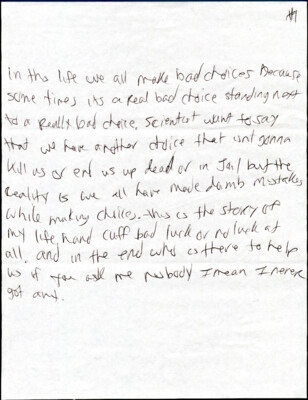 #1
in this life we all make bad choices Because
some times its a real bad choice standing next
to a Really bad choice. Scientist want to say
that we have another choice that isnt gonna
kill us or end us up dead or in Jail but the
Reality is we all have made damb mistakes
while making choices. this is the story of
my life, hand cuff bad luck or no luck at
all. and in the end who is there to help
us if you ask me nobody I mean I never
got any.